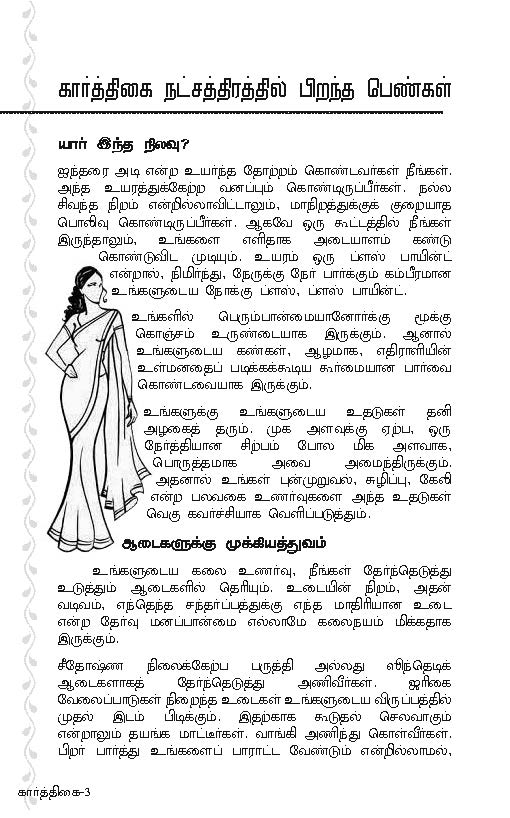 கார்த்திகை நட்சத்திரத்தில் பிறந்த பெண்கள்
யார் இந்த நிலவு?
ஐந்தரை அடி என்ற உயர்ந்த தோற்றம் கொண்டவர்கள் நீங்கள்.
அந்த உயரத்துக்கேற்ற வனப்பும் கொண்டிருப்பீர்கள். நல்ல
சிவந்த நிறம் என்றில்லாவிட்டாலும், மாநிறத்துக்குக் குறையாத
பொலிவு கொண்டிருப்பீர்கள். ஆகவே ஒரு கூட்டத்தில் நீங்கள்
இருந்தாலும், உங்களை எளிதாக அடையாளம் கண்டு
கொண்டுவிட முடியும். உயரம் ஒரு ப்ளஸ் பாயின்ட்
என்றால், நிமிர்ந்து, நேருக்கு நேர் பார்க்கும் கம்பீரமான
உங்களுடைய நோக்கு ப்ளஸ், ப்ளஸ் பாயின்ட்.
உங்களில் பெரும்பான்மையானோர்க்கு மூக்கு
கொஞ்சம் உருண்டையாக இருக்கும். ஆனால்
உங்களுடைய கண்கள், ஆழமாக, எதிராளியின்
உள்மனதைப் படிக்கக்கூடிய கூர்மையான பார்வை
கொண்டவையாக இருக்கும்.
உங்களுக்கு உங்களுடைய உதடுகள் தனி
அழகைத் தரும். முக அளவுக்கு ஏற்ப, ஒரு
நேர்த்தியான சிற்பம் போல மிக அளவாக,
பொருத்தமாக அவை அமைந்திருக்கும்.
அதனால் உங்கள் புன்முறுவல், சுழிப்பு, கேலி
என்ற பலவகை உணர்வுகளை அந்த உதடுகள்
வெகு கவர்ச்சியாக வெளிப்படுத்தும்.
ஆடைகளுக்கு முக்கியத்துவம்
உங்களுடைய கலை உணர்வு, நீங்கள் தேர்ந்தெடுத்து
உடுத்தும் ஆடைகளில் தெரியும். உடையின் நிறம், அதன்
வடிவம், எந்தெந்த சந்தர்ப்பத்துக்கு எந்த மாதிரியான உடை
என்ற தேர்வு மனப்பான்மை எல்லாமே கலைநயம் மிக்கதாக
இருக்கும்.
சீதோஷ்ண நிலைக்கேற்ப பருத்தி அல்லது ஸிந்தெடிக்
ஆடைகளாகத் தேர்ந்தெடுத்து அணிவீர்கள். ஜரிகை
வேலைப்பாடுகள் நிறைந்த உடைகள் உங்களுடைய விருப்பத்தில்
முதல் இடம் பிடிக்கும். இதற்காக கூடுதல் செலவாகும்
என்றாலும் தயங்க மாட்டீர்கள். வாங்கி அணிந்து கொள்வீர்கள்.
பிறர் பார்த்து உங்களைப் பாராட்ட வேண்டும் என்றில்லாமல்,
கார்த்திகை-3